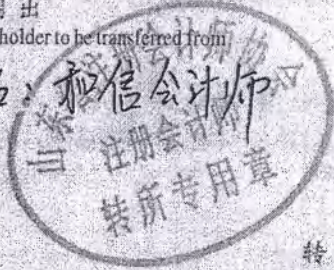 出
holder to be transferred from
和信会计师
山东 会计师协会
注册会计师
转所专用章
转